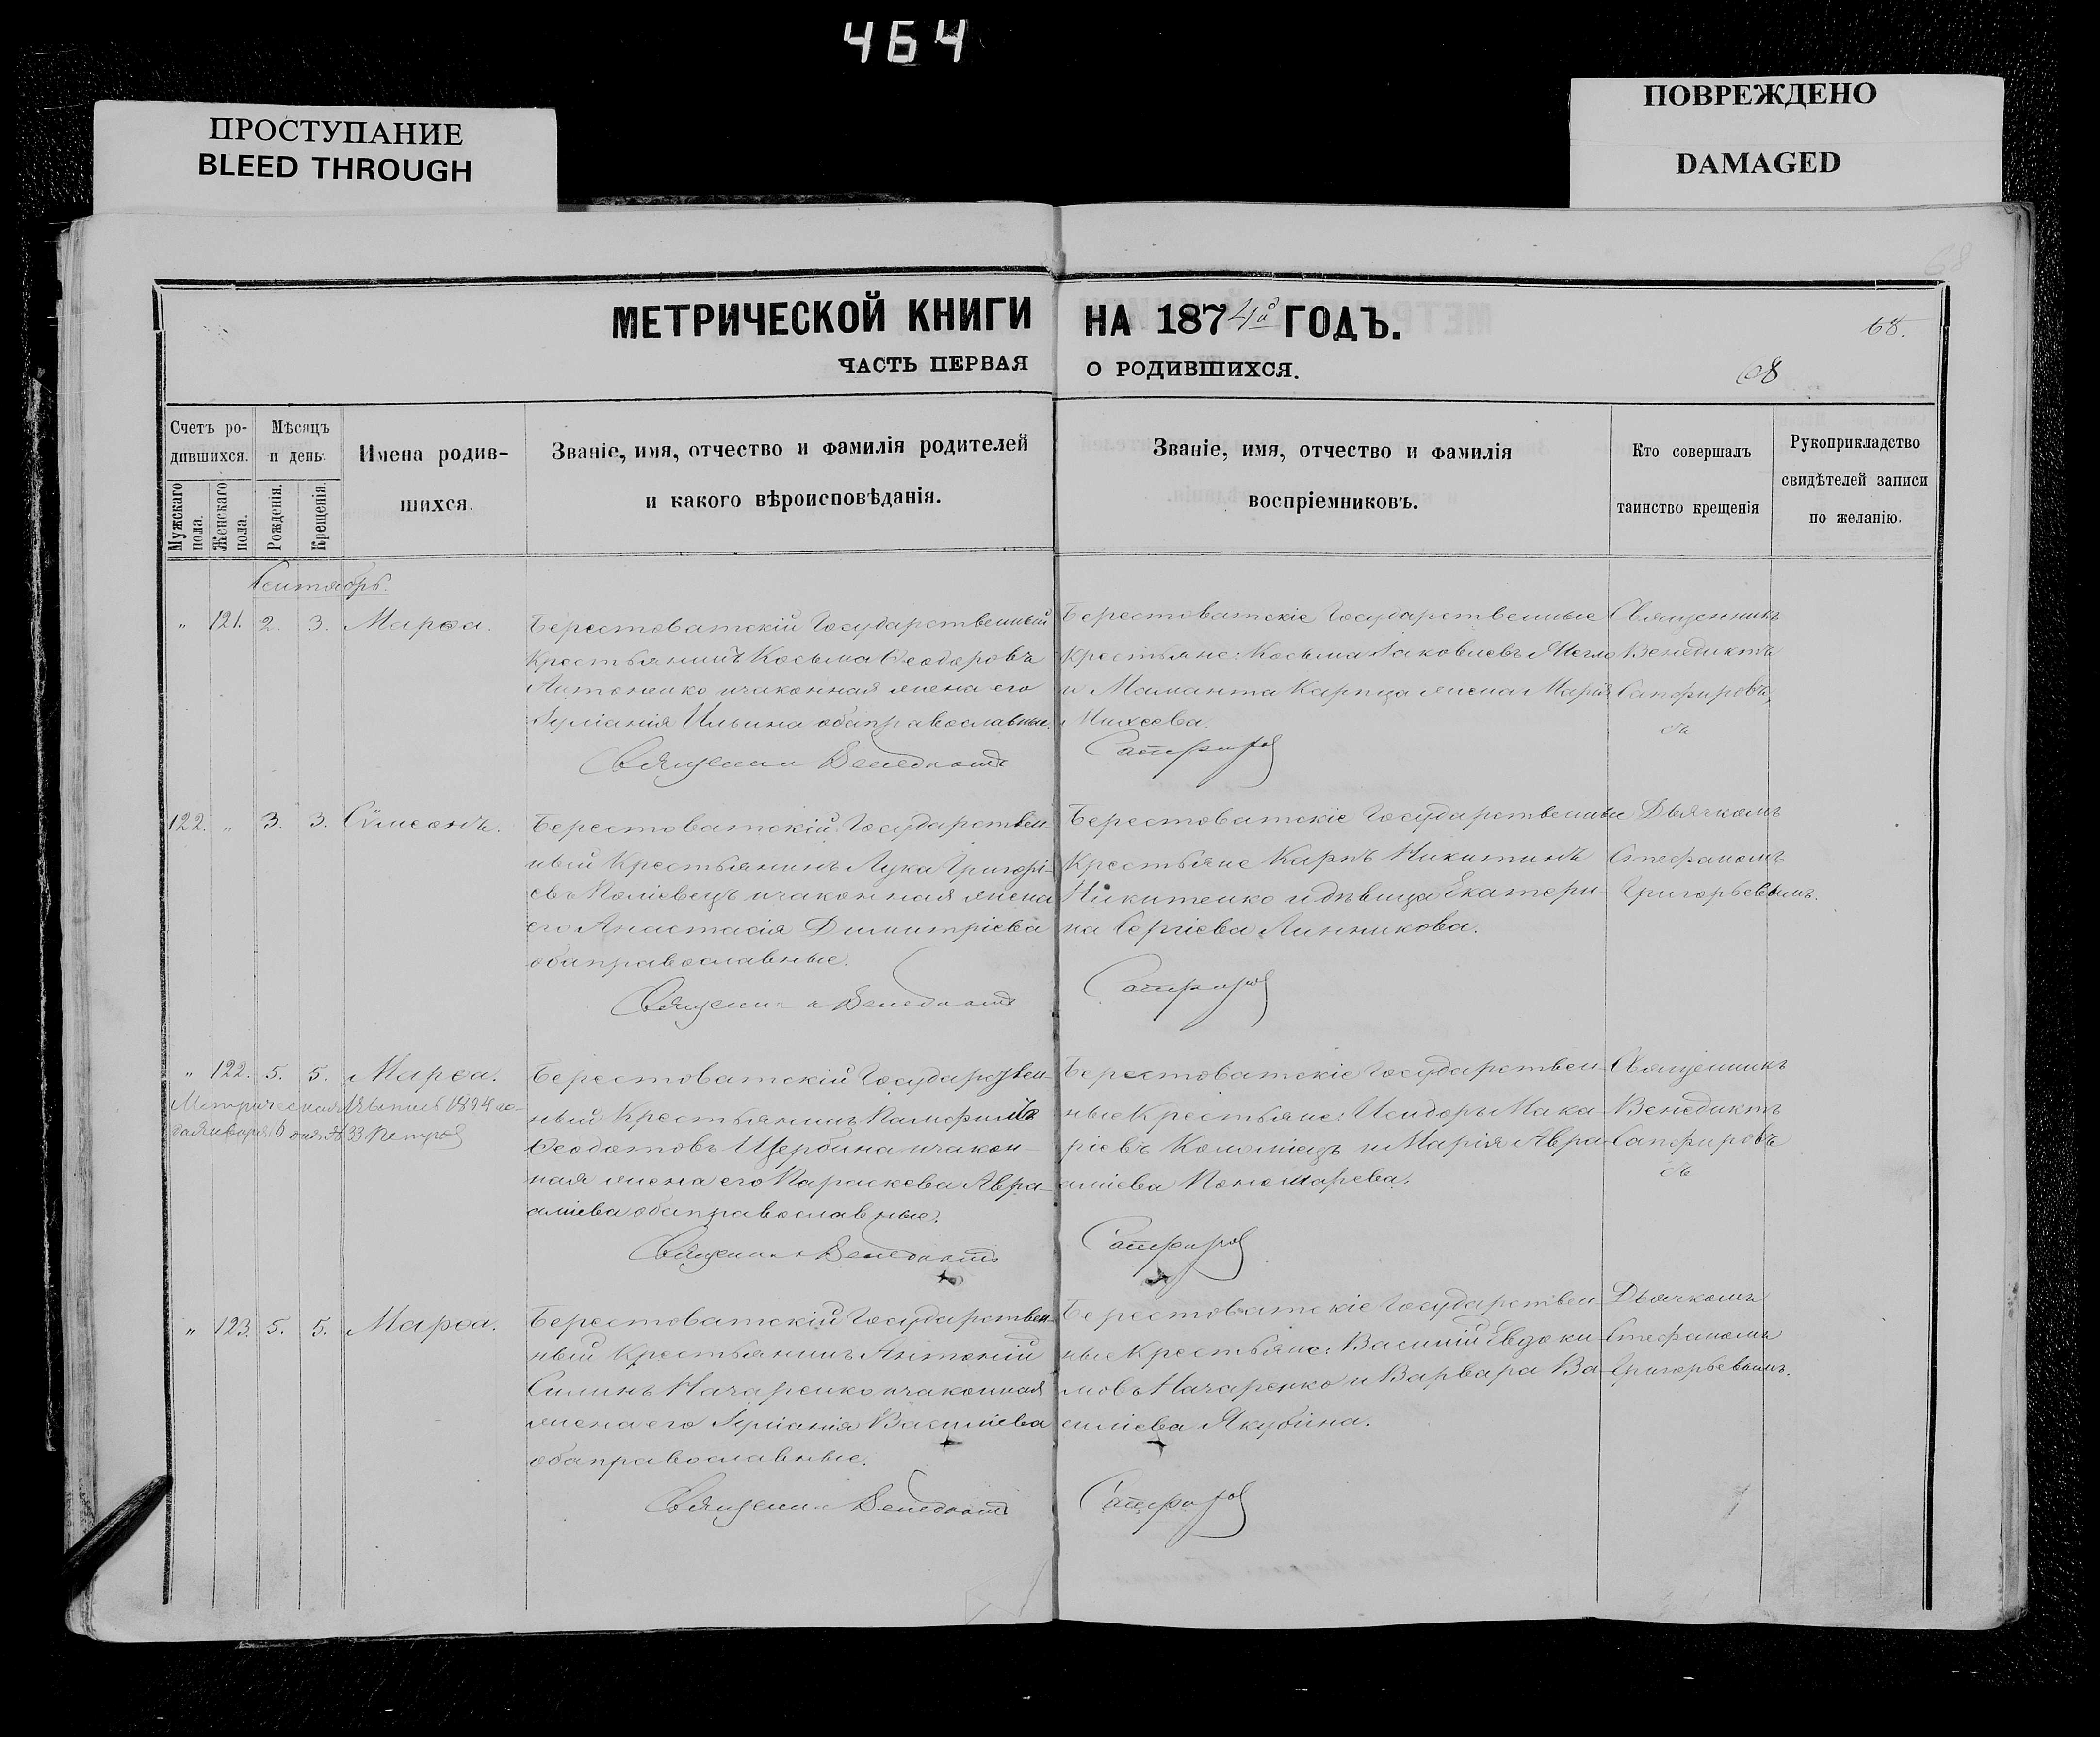 464
ПРОСТУПАНИЕ
BLEED THROUGH
ПОВРЕЖДЕНО
DAMAGED
МЕТРИЧЕСКОЙ КНИГИ НА 1874й ГОДЪ.
68.
ЧАСТЬ ПЕРВАЯ О РОДИВШИХСЯ.
68
Счетъ ро-
дившихся.
Мужскаго пола.
Женскаго пола.
Мѣсяцъ
и день.
Рожденія.
Крещенія.
Имена родив-
шихся.
Званіе, имя, отчество и фамилія родителей
и какого вѣроисповѣданія.
Званіе, имя, отчество и фамилія
воспріемниковъ.
Кто совершалъ
таинство крещенія
Рукоприкладство
свидѣтелей записи
по желанію.
Сентябрь.
" 121. 2. 3. Марѳа.
Берестоватскій Государственный
Крестьянинъ Косьма Ѳеодоровъ
Антоненко и законная жена его
Іуліанія Ильина оба православные.
Священникъ Венедиктъ
Берестоватскіе Государственные
Крестьяне: Косьма Іаковлевъ
и Маманта Карпца жена Марія
Михеева.
Сапфировъ
Священникъ
Венедиктъ
Сапфировъ,
122. " 3. 3. Сѵмеонъ.
Берестоватскій Государствен-
ный Крестьянинъ Лука Григорі-
евъ и законная жена
его Анастасія Димитріева
оба православные.
Священникъ Венедиктъ
Берестоватскіе Государственные
Крестьяне Карпъ Никитинъ
Никитенко и дѣвица Екатери-
на Сергіева Линникова.
Сапфировъ
Дьячкомъ
Стефаномъ
Григорьевымъ.
" 122. 5. 5. Марѳа.
Метрическая выпись 1894 го-
да января 6 дня № 33 Петров
Берестоватскій Государствен-
ный Крестьянинъ Памфилъ
Ѳеодотовъ Щербина и закон-
ная жена его Параскева Авра-
аміева оба православные.
Священникъ Венедиктъ
Берестоватскіе Государствен-
ные Крестьяне: Исидоръ Мака-
ріевъ Коломіецъ и Марія Авра-
аміева Пономарева.
Сапфировъ
Священникъ
Венедиктъ
Сапфировъ
" 123. 5. 5. Марѳа.
Берестоватскій Государствен-
ный Крестьянинъ Антоній
Силинъ Назаренко и законная
жена его Іуліанія Василіева
оба православные.
Священникъ Венедиктъ
Берестоватскіе Государствен-
ные Крестьяне: Василій Евдоки-
мовъ Назаренко и Варвара Ва-
силіева Якубина.
Сапфировъ
Дьячкомъ
Стефаномъ
Григорьевымъ.